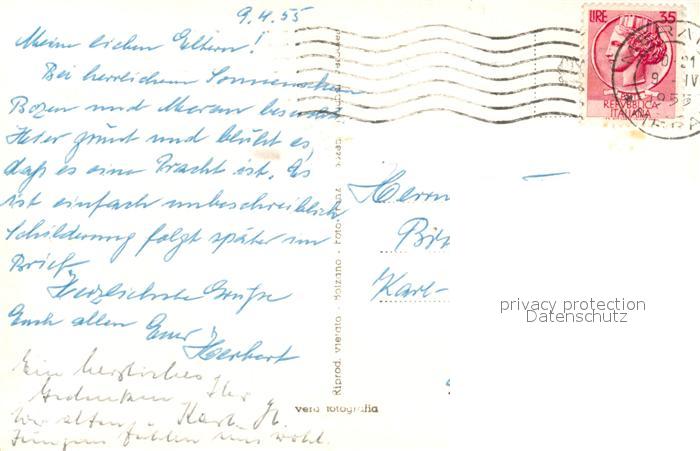 9.4.55
Meine lieben Eltern!
Bei herrlichem Sonnenschein
Bozen und Meran besucht
Hier grünt und blüht es,
daß es eine Pracht ist. Es
ist einfach unbeschreiblich
Schilderung folgt später im
Brief.
Herzlichste Grüße
Euch allen Euer
Herbert
Ein herzliches
Gedenken Ihr
Karl
Jungens fühlen uns wohl.
Herrn
Karl-
Riprod. vietata - Bolzano - Foto
vera fotografia
LIRE 35
REPVBBLICA
ITALIANA
privacy protection
Datenschutz